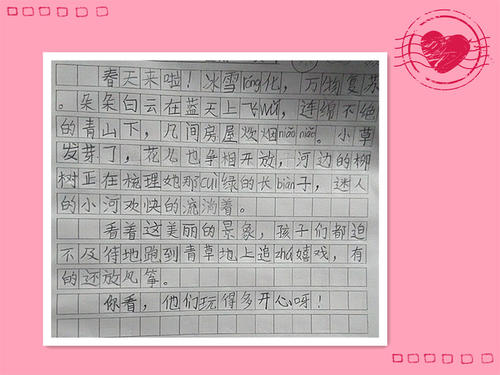 春天来啦！冰雪róng化，万物复苏
。朵朵白云在蓝天上飞wǔ，连绵不绝
的青山下，几间房屋炊烟niǎo niǎo。小草
发芽了，花儿也争相开放，河边的柳
树正在梳理她那cuì绿的长biàn子，迷人
的小河欢快的流淌着。
看着这美丽的景象，孩子们都迫
不及待地跑到青草地上追zhú嬉戏，有
的还放风筝。
你看，他们玩得多开心呀！